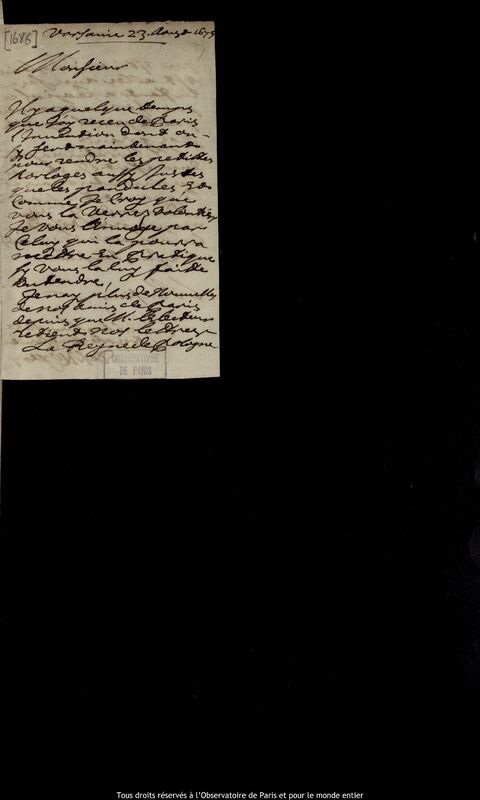 [1686] Varsauie 23. Aoust 1675
Monsieur
Il y a quelque temps
que j'ay receu de Paris
l'Inuention dont on
se sert maintenant
pour rendre les petittes
horloges aussy justes
que les pandules, et
comme je croy que
vous la verrez volontiers
je vous l'enuoye par
celuy qui la pourra
mettre en pratique
sy vous la luy faite
entendre,
Je n'ay plus de nouuelles
de nos amis de Paris
depuis que M. l'electeur
retient nos lettres
La Reyne de Pologne
OBSERVATOIRE
DE PARIS
Tous droits réservés à l'Observatoire de Paris et pour le monde entier